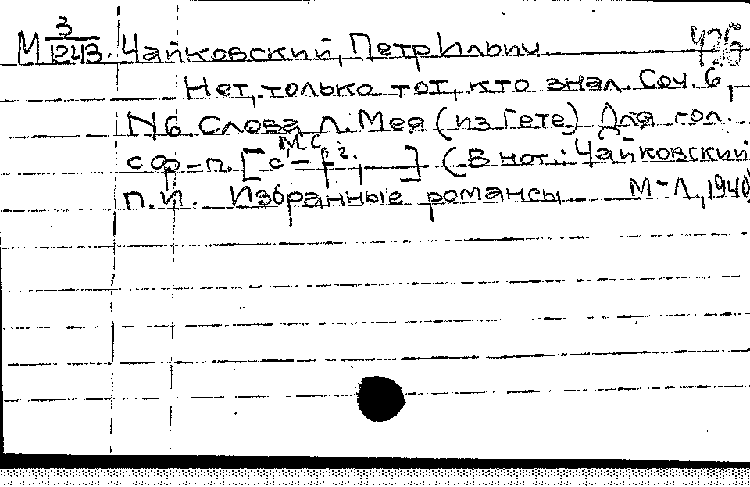 М 3/1243. Чайковский, Петр Ильич 426
Нет, только тот, кто знал. Соч. 6,
N6 Слова Л. Мея (из Гете) Для гол.
с ф-п. [ ] (В нот.: Чайковский
П.И. Избранные романсы М-Л, 1940